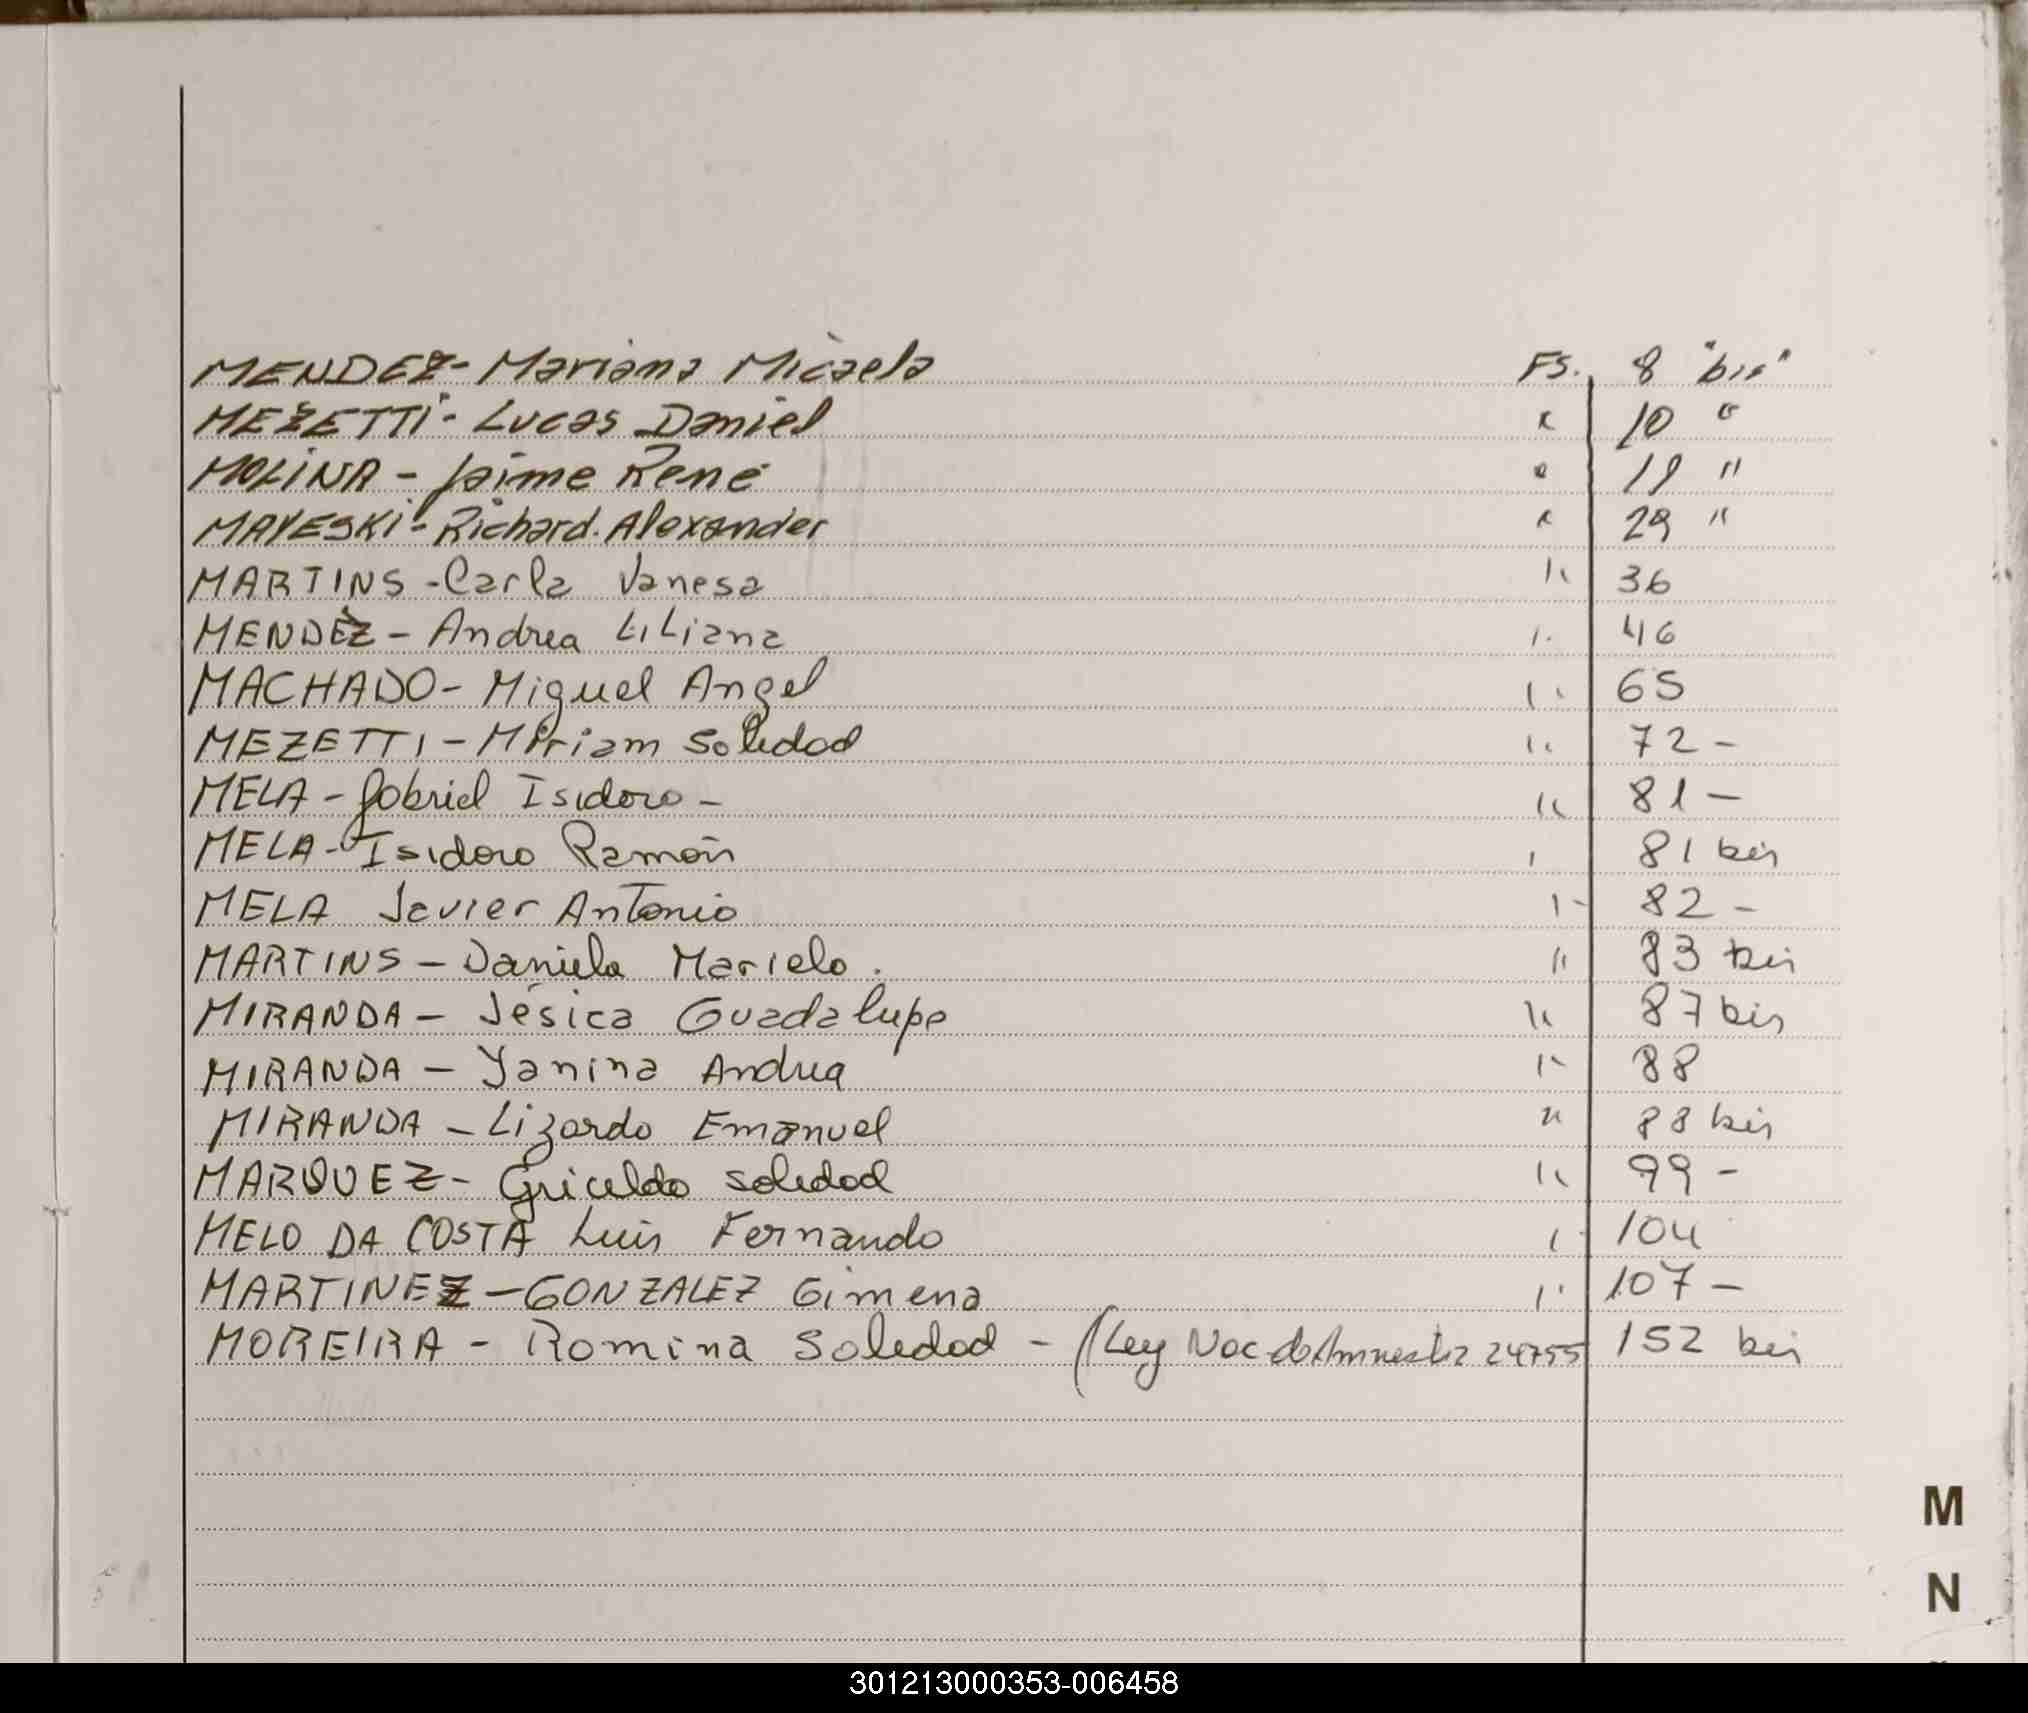 MENDEZ- Mariana Micaela FS. 8 "bis"
MEZETTI- Lucas Daniel " 10 "
MOLINA - Jaime René " 19 "
MAYESKI- Richard. Alexander " 29 "
MARTINS -Carla Vanesa " 36
MENDEZ - Andrea Liliana " 46
MACHADO - Miguel Angel " 65
MEZETTI - Miriam Soledad " 72 -
MELA - Gabriel Isidoro - " 81 -
MELA - Isidoro Ramón " 81 bis
MELA Javier Antonio " 82 -
MARTINS - Daniela Mariela. " 83 bis
MIRANDA - Jésica Guadalupe " 87 bis
MIRANDA - Yanina Andrea " 88
MIRANDA - Lizardo Emanuel " 88 bis
MARQUEZ - Gricelda Soledad " 99 -
MELO DA COSTA Luis Fernando " 104
MARTINEZ - GONZALEZ Gimena " 107 -
MOREIRA - Romina Soledad - (Ley Nac de Amnestia 24755 152 bis
M
N
301213000353-006458